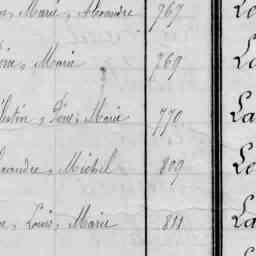 Marie, Alexandre 767 Le
Marie 769 La
Célestin, Désiré, Marie 770 La
Alexandre, Michel 809 Le
Louis, Marie 811 La